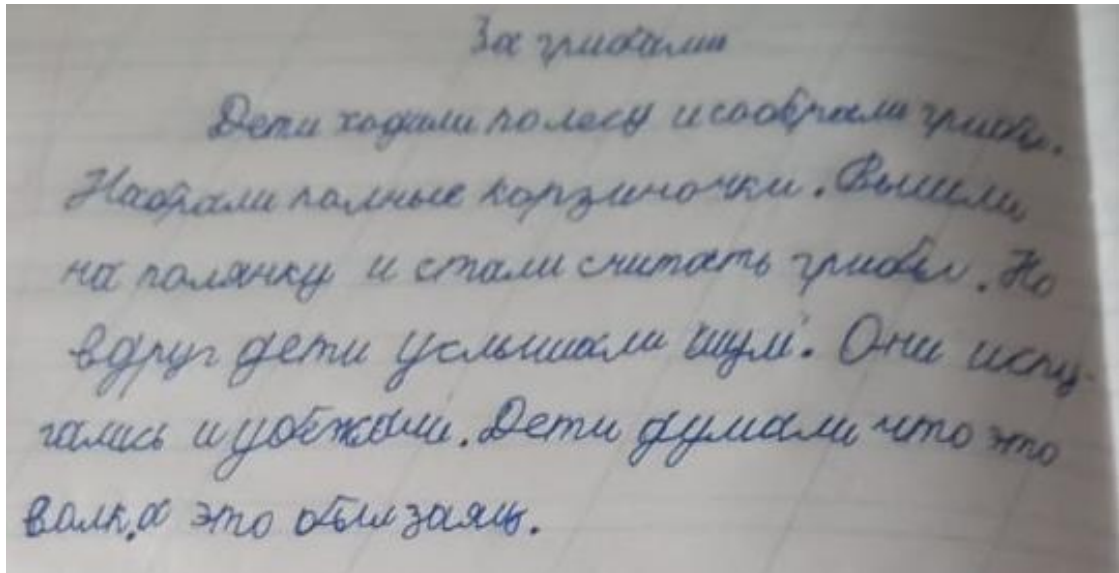 За грибами
Дети ходили по лесу и собрали грибы.
Набрали полные корзиночки. Вышли
на полянку и стали считать грибы. Но
вдруг дети услышали шум. Они испу-
гались и убежали. Дети думали что это
волк, а это был заяц.